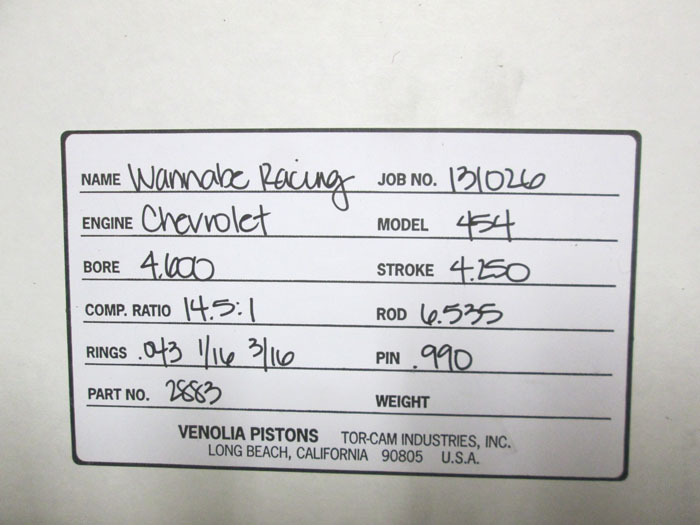 NAME Wannabe Racing JOB NO. 131026
ENGINE Chevrolet MODEL 454
BORE 4.600 STROKE 4.250
COMP. RATIO 14.5:1 ROD 6.535
RINGS .043 1/16 3/16 PIN .990
PART NO. 2883 WEIGHT
VENOLIA PISTONS TOR-CAM INDUSTRIES, INC.
LONG BEACH, CALIFORNIA 90805 U.S.A.